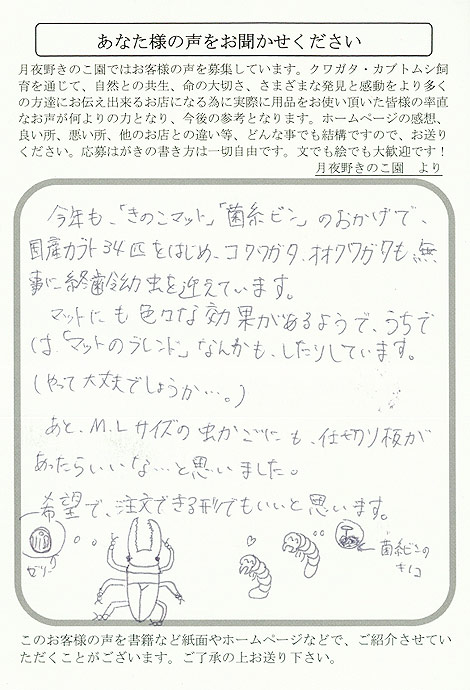 あなた様の声をお聞かせください
月夜野きのこ園ではお客様の声を募集しています。クワガタ・カブトムシ飼
育を通じて、自然との共生、命の大切さ、さまざまな発見と感動をより多く
の方達にお伝え出来るお店になる為に実際に用品をお使い頂いた皆様の率直
なお声が何よりの力となり、今後の参考となります。ホームページの感想、
良い所、悪い所、他のお店との違い等、どんな事でも結構ですので、お送り
ください。応募はがきの書き方は一切自由です。文でも絵でも大歓迎です！
月夜野きのこ園　より
今年も、「きのこマット」「菌糸ビン」のおかげで、
国産カブト34匹をはじめ、コクワガタ、オオクワガタも、無
事に終齢幼虫を迎えています。
マットにも色々な効果があるようで、うちで
は、「マットのブレンド」なんかも、したりしています。
（やって大丈夫でしょうか…。）
あと、M.Lサイズの虫かごにも、仕切り板が
あったらいいな…と思いました。
希望で、注文できる形でもいいと思います。
ゼリー
菌糸ビンの
キノコ
このお客様の声を書籍など紙面やホームページなどで、ご紹介させてい
ただくことがございます。ご了承の上お送り下さい。